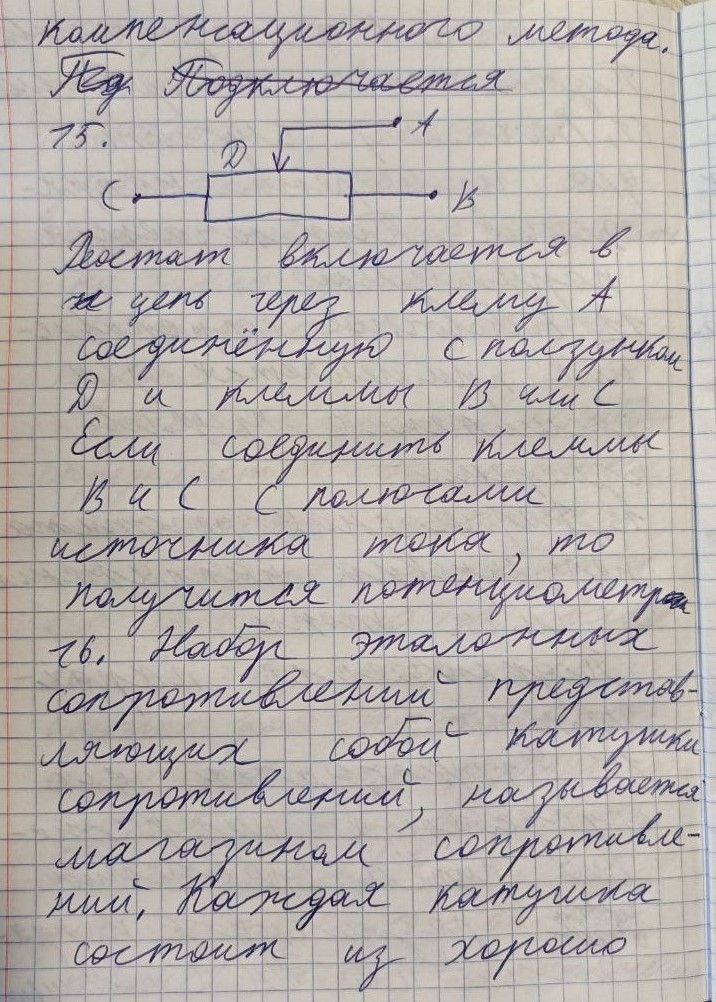 компенсационного метода.
Под Подключается
15.
A
D
C
B
Реостат включается в
цепь через клему А
соединённую с ползунком
D и клеммы В или С
Если соединить клеммы
В и С с полюсами
источника тока, то
получится потенциометр
16. Набор эталонных
сопротивлений представ-
ляющих собой катушки
сопротивлений, называется
магазином сопротивле-
ний. Каждая катушка
состоит из хорошо